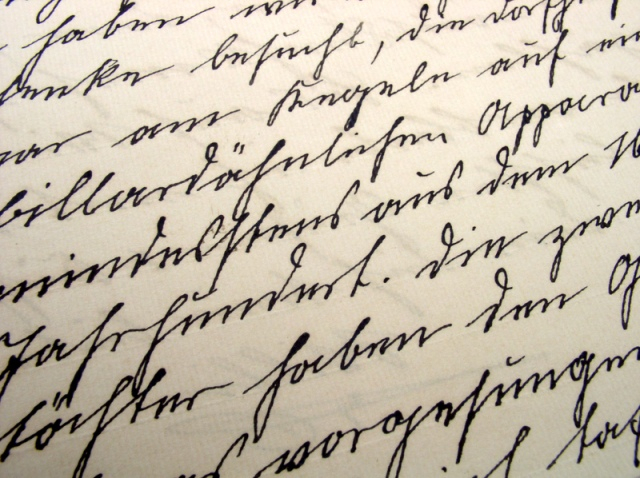 haben wi
enke besucht, die dorfs
ar am Kegeln auf ei
billardähnlichen Appara
mindestens aus dem 16
Jahrhundert. Die zwe
töchter haben den G
vorgesungen
ich tat